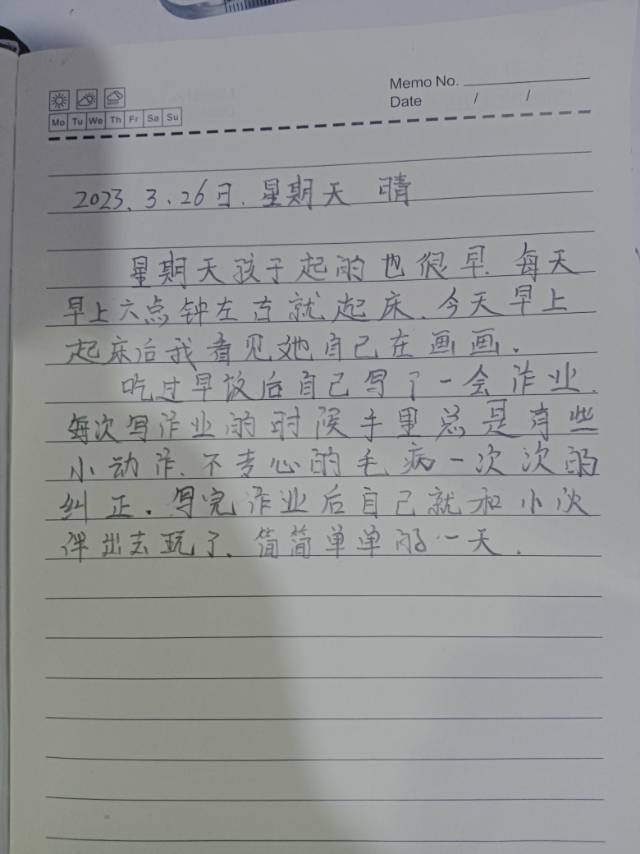 Memo No.
Date / /
Mo Tu We Th Fr Sa Su
2023.3.26日.星期天 晴
星期天孩子起的也很早.每天
早上六点钟左右就起床.今天早上
起床后我看见她自己在画画.
吃过早饭后自己写了一会作业.
每次写作业的时候手里总是有些
小动作.不专心的毛病一次次的
纠正.写完作业后自己就和小伙
伴出去玩了.简简单单的一天.